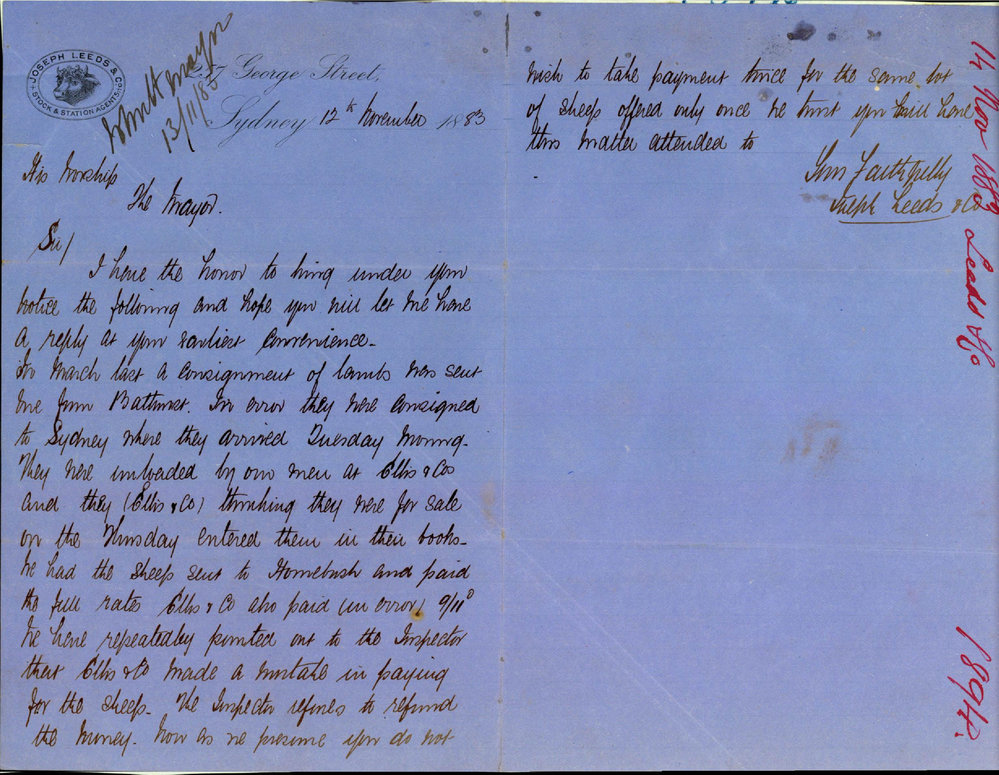 JOSEPH LEEDS & Co
STOCK & STATION AGENTS
13/11/83
257 George Street,
Sydney 12th November 1883
His Worship
The Mayor.
Sir/
I have the honor to bring under your
notice the following and hope you will let me have
a reply at your earliest convenience-
In March last a consignment of lambs was sent
me from Bathurst. In error they were consigned
to Sydney where they arrived Tuesday morning-
They were unloaded by our men at Ellis & Cos
and they (Ellis & Co) thinking they were for sale
on the Thursday entered them in their books-
We had the sheep sent to Homebush and paid
the full rates Ellis & Co also paid (in error) 9/11d
We have repeatedly pointed out to the Inspector
that Ellis & Co made a mistake in paying
for the sheep- The Inspector refuses to refund
the money. Now as we presume you do not
wish to take payment twice for the same lot
of sheep offered only once we trust you will have
this matter attended to
Yours Faithfully
Joseph Leeds & Co
14 Nov 1883 Leeds & Co
1894.